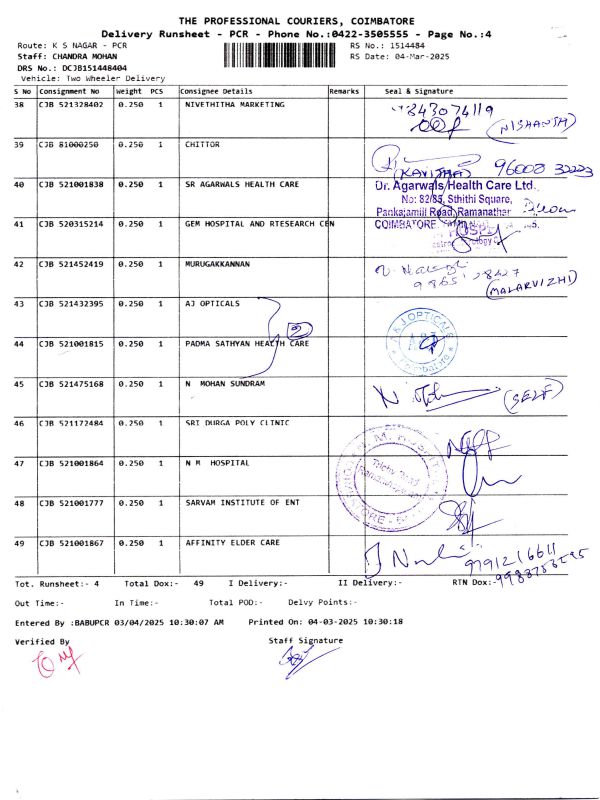 THE PROFESSIONAL COURIERS, COIMBATORE
Delivery Runsheet - PCR - Phone No.:0422-3505555 - Page No.:4
Route: K S NAGAR - PCR RS No.: 1514484
Staff: CHANDRA MOHAN RS Date: 04-Mar-2025
DRS No.: DCJB151448404
Vehicle: Two Wheeler Delivery
S No Consignment No Weight PCS Consignee Details Remarks Seal & Signature
38 CJB 521328402 0.250 1 NIVETHITHA MARKETING 843074119
(NISHANTH)
39 CJB 81000250 0.250 1 CHITTOR
(KAVITHA) 96008 32223
40 CJB 521001838 0.250 1 SR AGARWALS HEALTH CARE Dr. Agarwals Health Care Ltd.
No: 82/85, Sthithi Square,
Pankajamill Road, Ramanathar
41 CJB 520315214 0.250 1 GEM HOSPITAL AND RTESEARCH CEN COIMBATORE
42 CJB 521452419 0.250 1 MURUGAKKANNAN
(MALARVIZHI)
43 CJB 521432395 0.250 1 AJ OPTICALS A&J OPTICALS
2
44 CJB 521001815 0.250 1 PADMA SATHYAN HEALTH CARE Coimbatore
45 CJB 521475168 0.250 1 N MOHAN SUNDRAM (SELF)
46 CJB 521172484 0.250 1 SRI DURGA POLY CLINIC
47 CJB 521001864 0.250 1 N M HOSPITAL Trichy Road
48 CJB 521001777 0.250 1 SARVAM INSTITUTE OF ENT
49 CJB 521001867 0.250 1 AFFINITY ELDER CARE 9791216611
Tot. Runsheet:- 4 Total Dox:- 49 I Delivery:- II Delivery:- RTN Dox:-
Out Time:- In Time:- Total POD:- Delvy Points:-
Entered By :BABUPCR 03/04/2025 10:30:07 AM Printed On: 04-03-2025 10:30:18
Verified By Staff Signature